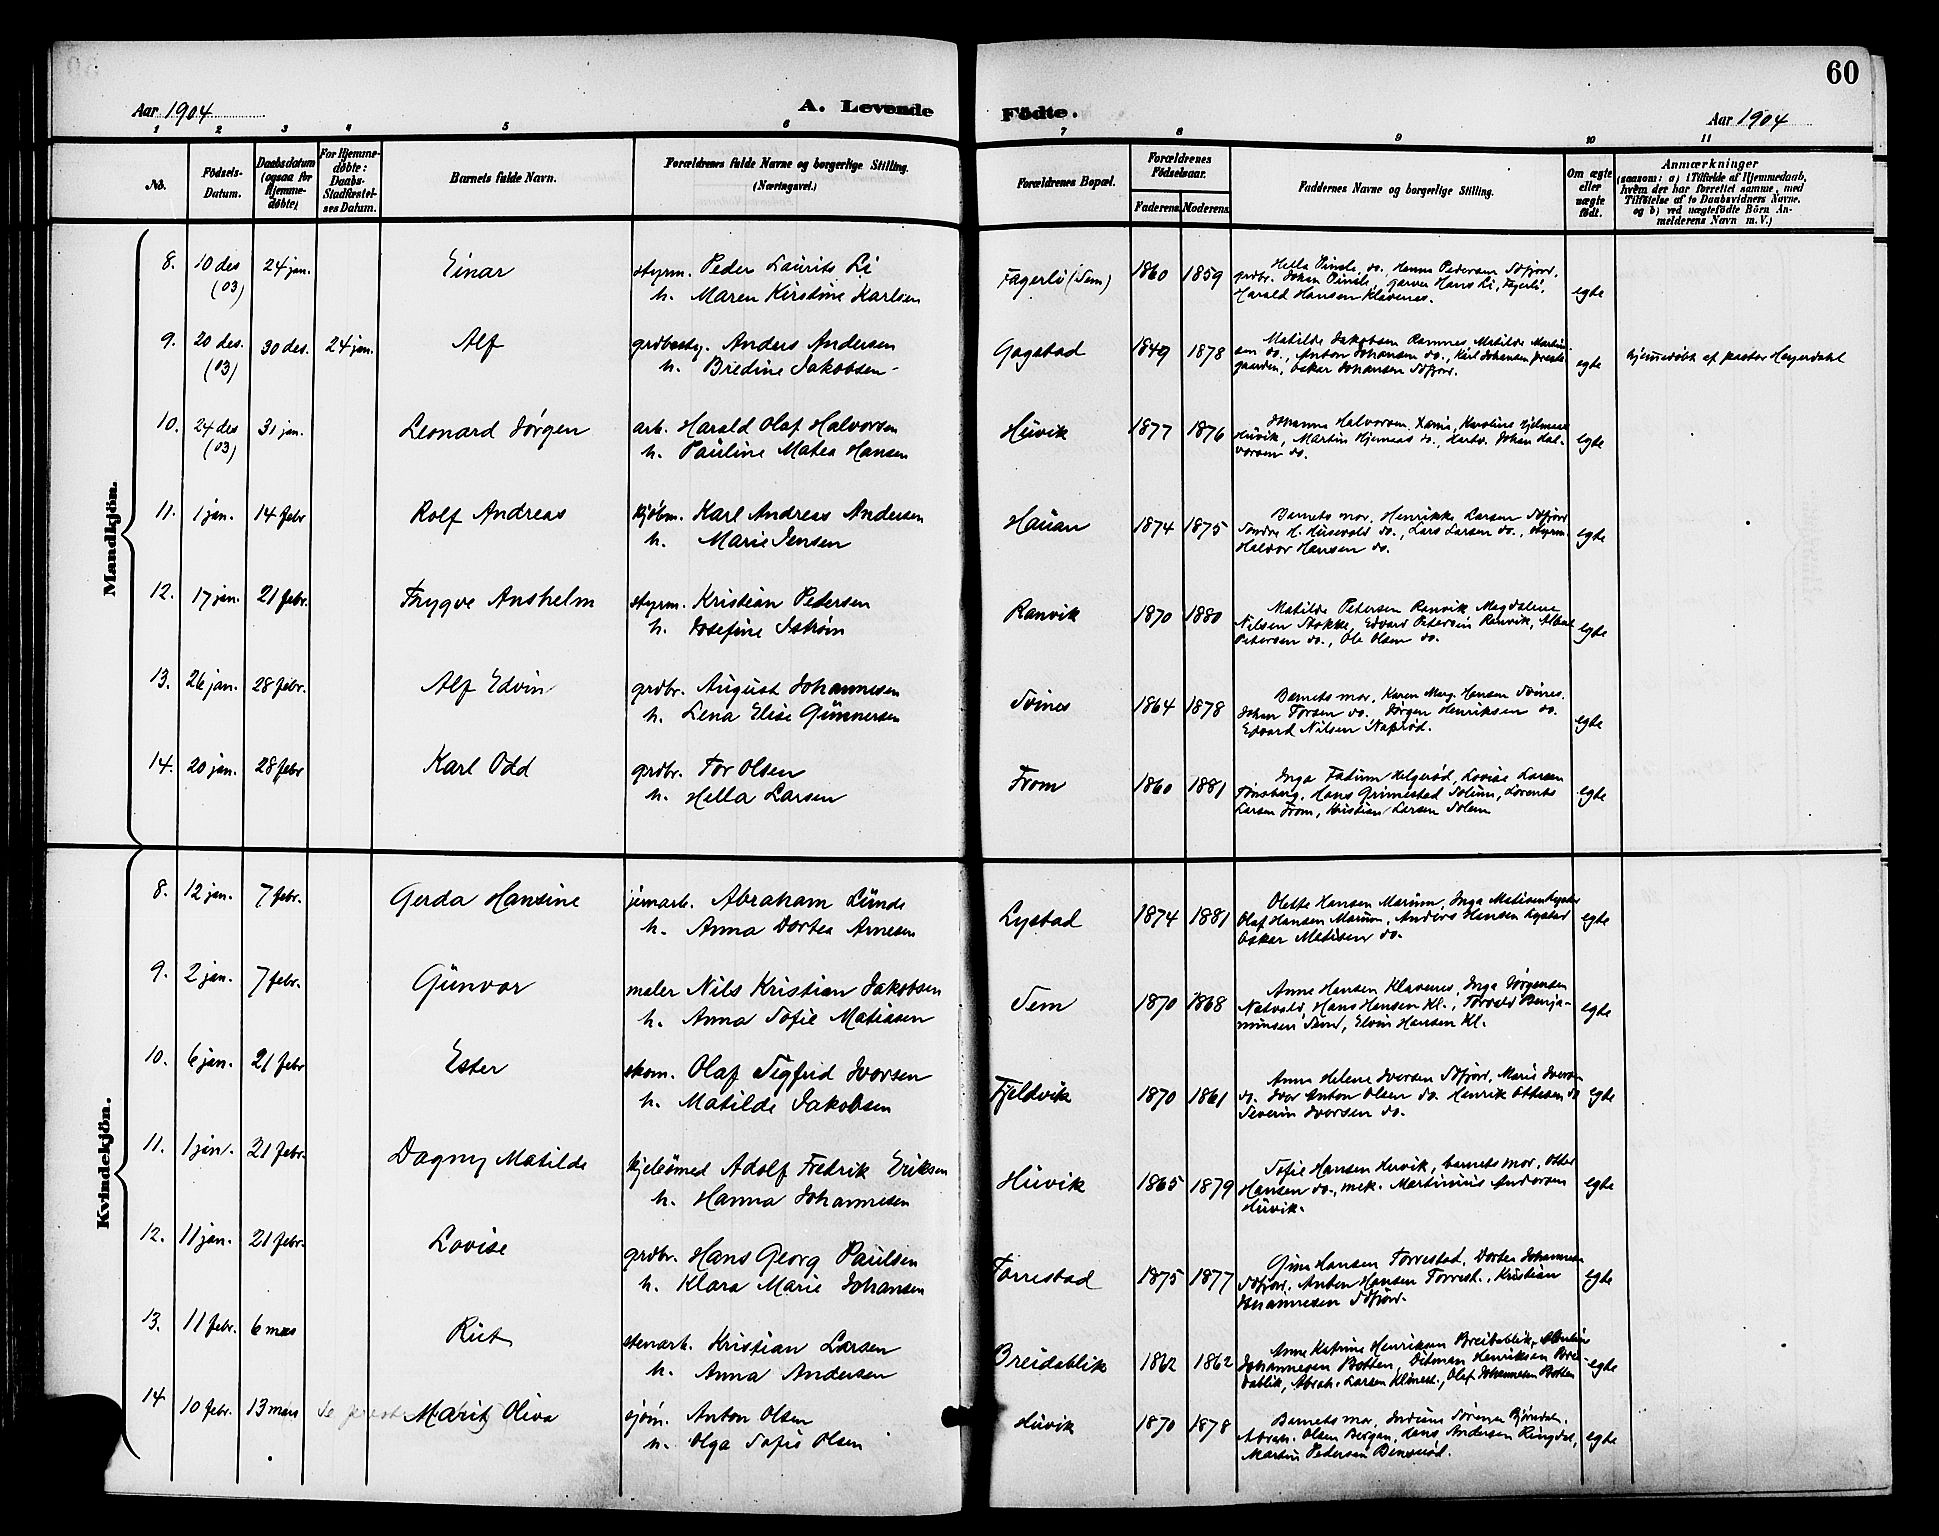 60
Aar 1904
A. Levende
Födte.
Aar 1904
1 2 3 4 5 6 7 8 9 10 11
No.
Födsels-Datum.
Daabsdatum (ogsaa for Hjemme-döbte)
For Hjemme-döbte: Daabs-Stadfæstel-ses Datum.
Barnets fulde Navn.
Forældrenes fulde Navne og borgerlige Stilling. (Næringsvei.)
Forældrenes Bopæl.
Forældrenes Födselsaar.
Faderens Moderens
Faddernes Navne og borgerlige Stilling.
Om ægte eller uægte födt.
Anmærkninger
(saasom: a) i Tilfælde af Hjemmedaab,
hvem der har forrettet samme, med
Tilföielse af to Daabsvidners Navne.
og b) ved uægtefödte Börn An-
melderens Navn m. V.)
Mandkjön.
8. 10 des (03) 24 jan. Einar
styrm. Peder Laurits Li
h. Maren Kirstine Karlsen
Fagerli (Sem) 1860 1859
Harald Hansen Klavenes.
egte
9. 20 des. (03) 30 des. 24 jan. Alf
grdbesty. Anders Andersen
h. Bredine Jakobsen
Gogstad 1849 1878
Matilde Jakobsen Ramnes Matilde Martin
sen do., Anton Johansen do., Karl Johansen preste
gaarden, Oskar Johansen Sdfjord.
egte
hjemmedöbt af pastor Heyerdahl
10. 24 des (03) 31 jan. Leonard Jørgen
arb. Harald Olaf Halvorsen
h. Pauline Matea Hansen
Huvik 1877 1876
Huvik, Martin Hjemaas do., Johan Hal-
vorsen do.
egte
11. 1 jan. 14 febr Rolf Andreas
kjøbm. Karl Andreas Andersen
h. Marie Jensen
Hauan 1874 1875
Barnets mor, Henrikke Larsen Sdfjord
Sondre H. Husevold do., Lars Larsen do., styrm.
Halvor Hansen do.
egte
12. 17 jan. 21 febr. Trygve Anshelm
styrm. Kristian Pedersen
h. Josefine
Ranvik 1870 1880
Matilde Petersen Ranvik Magdalene
Nilsen Stokke, Edvard Petersen Ranvik, Albert
Petersen do., Ole Olsen do.
egte
13. 26 jan. 28 febr. Alf Edvin
grdbr. August Johannesen
h. Lena Elise Gunnersen
Svines 1864 1878
Barnets mor, Karen Marg. Hansen Svines.
Johan Torsen do. Jørgen Henriksen do.
Edvard Nilsen
egte
14. 20 jan. 28 febr Karl Odd
grdbr. Tor Olsen
h. Hella Larsen
From 1860 1881
Inga Fadum Helgerød, Lovise Larsen
Tønsberg, Hans Grimestad Solum, Lorents
Larsen From, Kristian Larsen Solum
egte
Kvindekjön.
8. 12 jan. 7 febr. Gerda Hansine
jernarb. Abraham Lunde
h. Anna Dortea Arnesen
Lystad 1874 1881
Olette Hansen Marum, Inga Matisen Lystad
Olaf Hansen Marum, Anders Hansen Lystad
Oskar Matisen do.
egte
9. 2 jan. 7 febr. Gunvor
maler Nils Kristian Jakobsen
h. Anna Sofie Matiasen
Sem 1870 1868
Anne Hansen Klavenes, Inga Jørgensen
Natvold, Hans Hansen Kl., Torvald Benja-
minsen Sand, Elvin Hansen Kl.
egte
10. 6 jan. 21 febr Ester
skom. Olaf Sigfrid Iversen
h. Matilde Jakobsen
Fjeldvik 1870 1861
Anne Helene Iversen Sdfjord, Marie Iversen
do. Ivar Anton Olsen do. Henrik Ottesen do
Severin Iversen do.
egte
11. 1 jan. 21 febr. Dagny Matilde
kjelsmed Adolf Fredrik Eriksen
h. Hanna Johannesen
Huvik 1865 1879
Sofie Hansen Huvik, barnets mor, Otter
Hansen do., mek. Martinius Andersen
Huvik.
egte
12. 11 jan. 21 febr. Lovise
grdbr. Hans Georg Paulsen
h. Klara Marie Johansen
Torrestad 1875 1877
Gina Hansen Torrestad, Dortea Johannesen
Sdfjord. Anton Hansen Torrest., Kristian
Johannesen Sdfjord.
egte
13. 11 febr. 6 mars Rut
stenarb. Kristian Larsen
h. Anna Andersen
Breidablik 1862 1862
Anne Katrine Henriksen Breidablik,
Johannesen Botten, Ditman Henriksen Brei-
dablik, Abrah. Larsen Klinest., Olaf Johannesen Botten
egte
14 10 febr. 13 mars Marit Oliva
sjøm. Anton Olsen
h. Olga Sofie Olsen
Huvik 1870 1878
Barnets mor, Sørense Bjørndalen,
Abrah. Olsen Bergan, Hans Andersen Ringdal,
Martin Pedersen
egte